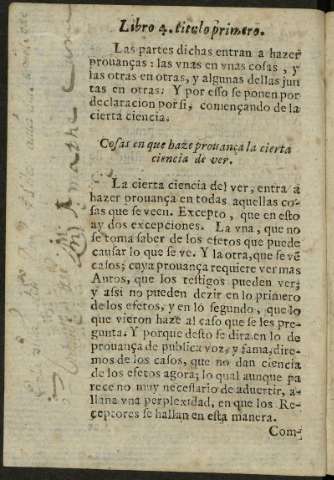 Libro 4. titulo primero.
Las partes dichas entran a hazer
prouanças: las vnas en vnas cosas, y
las otras en otras, y algunas dellas jun
tas en otras. Y por esso se ponen por
declaracion por si, començando de la
cierta ciencia.
Cosas en que haze prouança la cierta
ciencia de ver.
La cierta ciencia del ver, entra a
hazer prouança en todas aquellas co-
sas que se veen. Excepto, que en esto
ay dos excepciones. La vna, que no
se toma saber de los efetos que puede
causar lo que se ve. Y la otra, que se vẽ
casos; cuya prouança requiere ver mas
Autos, que los testigos pueden ver;
y assi no pueden dezir en lo primero
de los efetos, y en lo segundo, que lo
que vieron haze al caso que se les pre-
gunta. Y porque desto se dira en lo de
prouança de publica voz, y fama, dire-
mos de los casos, que no dan ciencia
de los efetos agora; lo qual aunque pa
rece no muy necessario de aduertir, a-
llana vna perplexidad, en que los Re-
ceptores se hallan en esta manera.
Com-